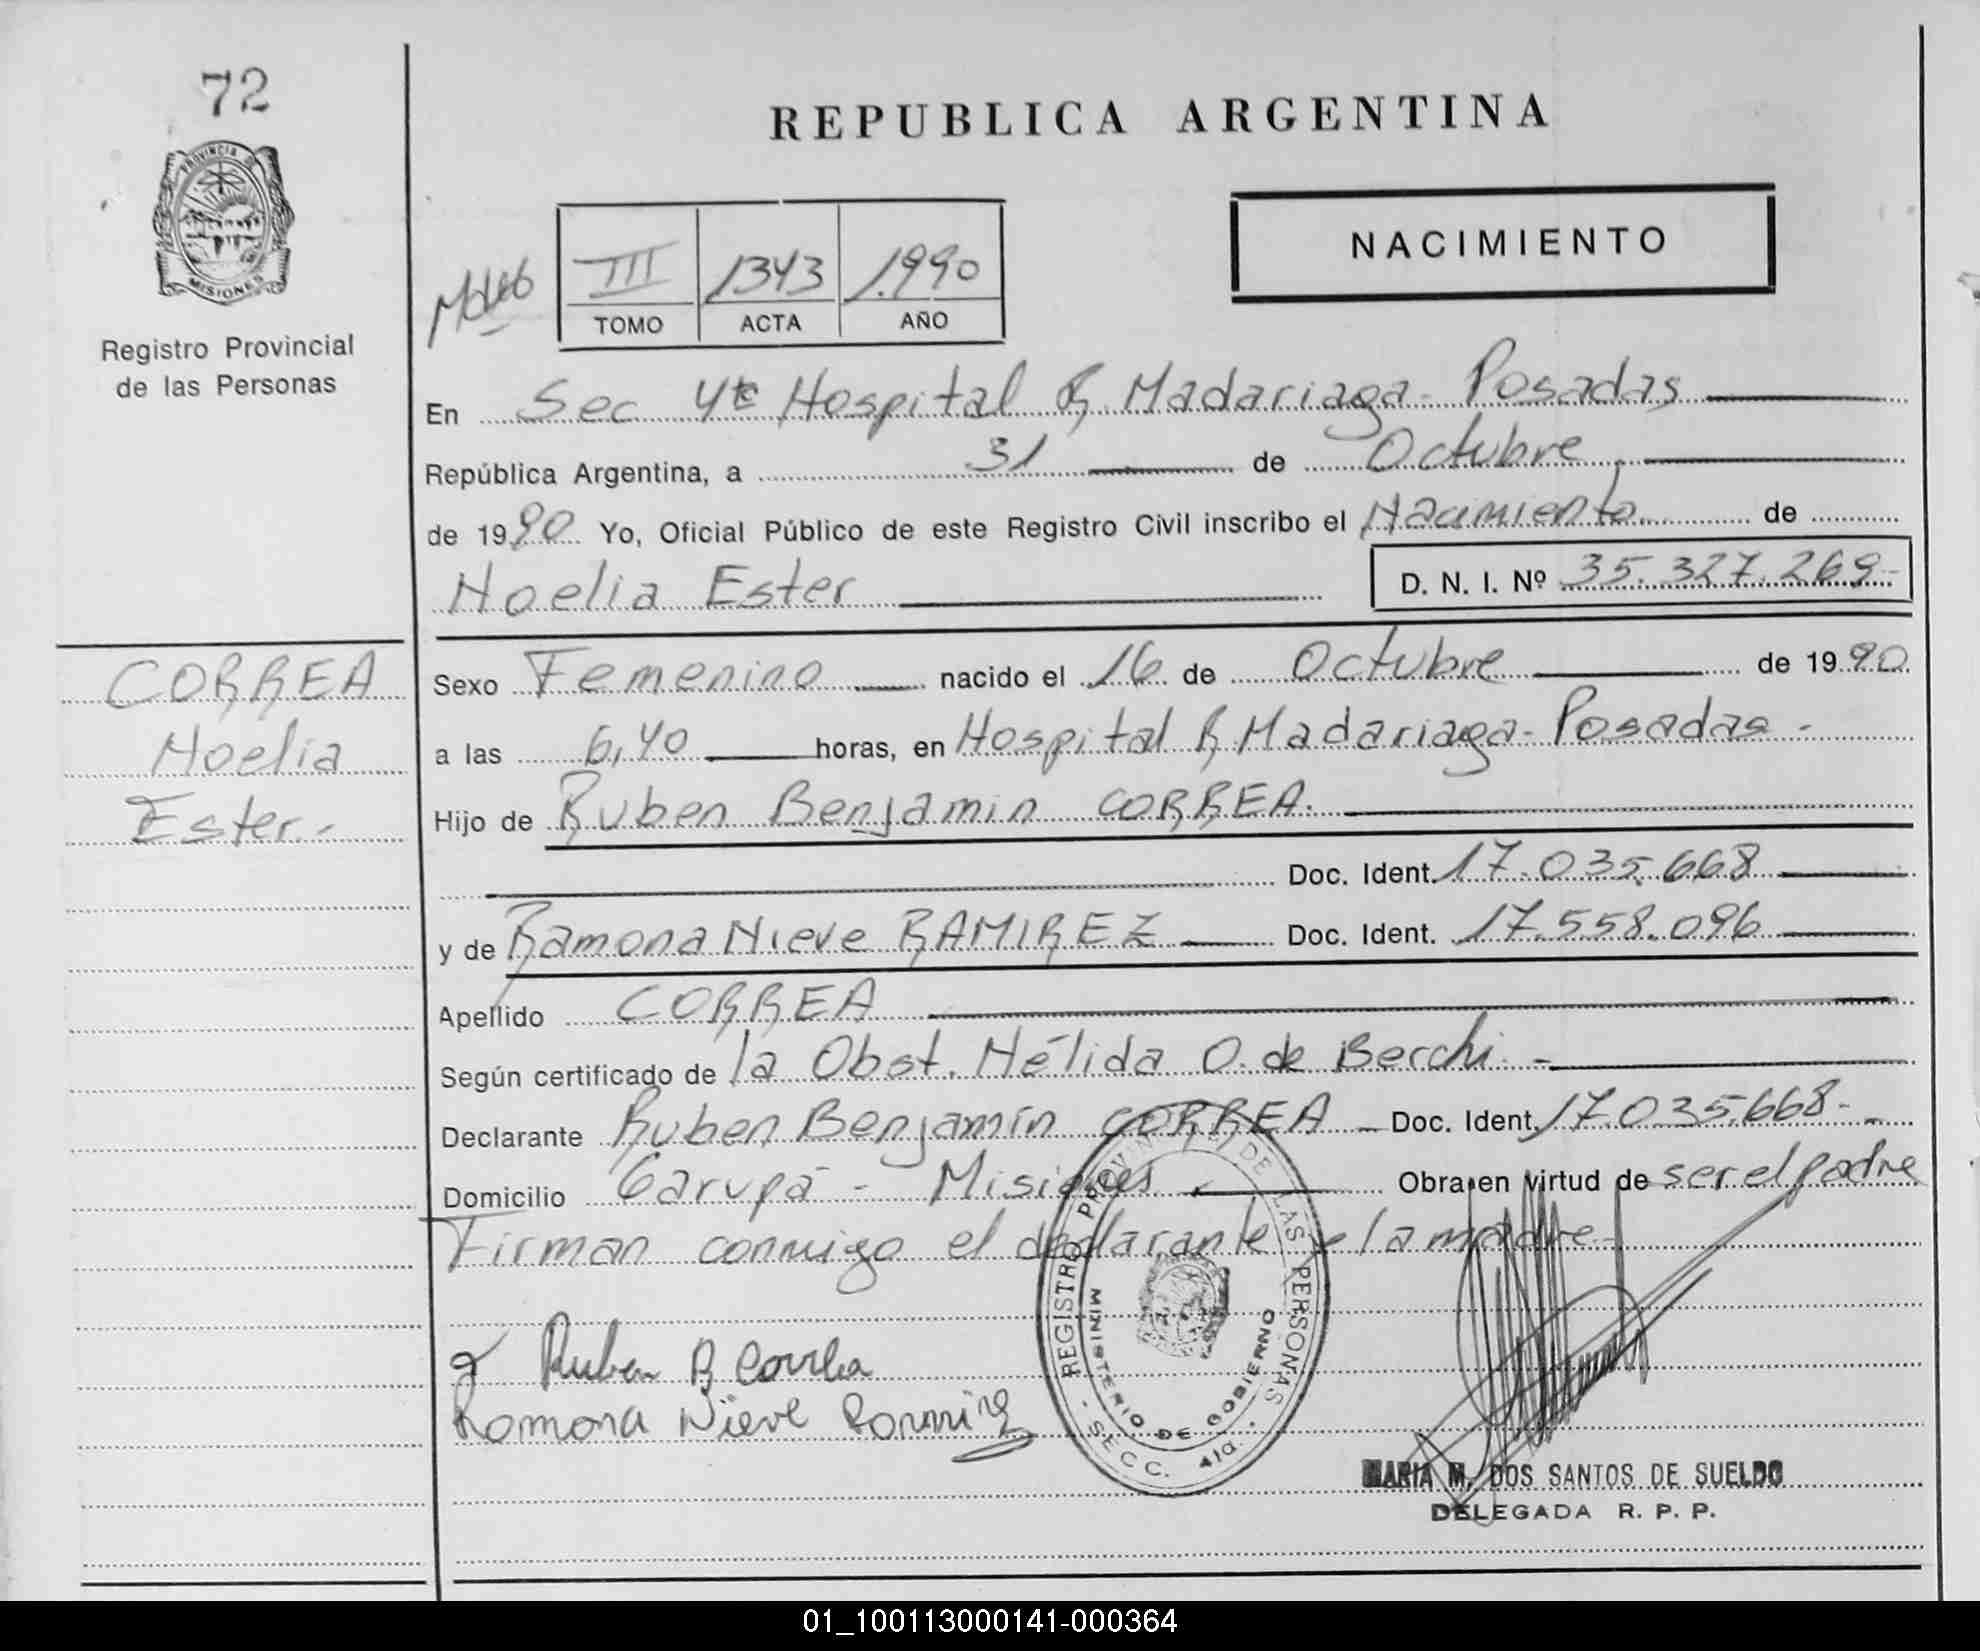 72
PROVINCIA DE
MISIONES
Registro Provincial
de las Personas
REPUBLICA ARGENTINA
NACIMIENTO
III 1343 1.990
TOMO ACTA AÑO
En Sec 4ta Hospital R. Madariaga - Posadas
República Argentina, a 31 de Octubre
de 1990 Yo, Oficial Público de este Registro Civil inscribo el Nacimiento de
Noelia Ester D. N. I. Nº 35.327.269-
CORREA
Noelia
Ester.-
Sexo Femenino nacido el 16 de Octubre de 1990
a las 6,40 horas, en Hospital R Madariaga - Posadas -
Hijo de Ruben Benjamin CORREA.
Doc. Ident. 17.035.668
y de Ramona Nieve RAMIREZ Doc. Ident. 17.558.096
Apellido CORREA
Según certificado de la Obst. Nélida O. de Berchi -
Declarante Ruben Benjamín CORREA - Doc. Ident. 17.035.668-
Domicilio Garupá - Misiones Obra en virtud de ser el padre
Firman conmigo el declarante y la madre-
Ruben B Correa
Ramona Nieve Ramirez
REGISTRO PROVINCIAL DE LAS PERSONAS
MINISTERIO DE GOBIERNO
- SECC. 4ta. -
MARIA M. DOS SANTOS DE SUELDO
DELEGADA R. P. P.
01_100113000141-000364